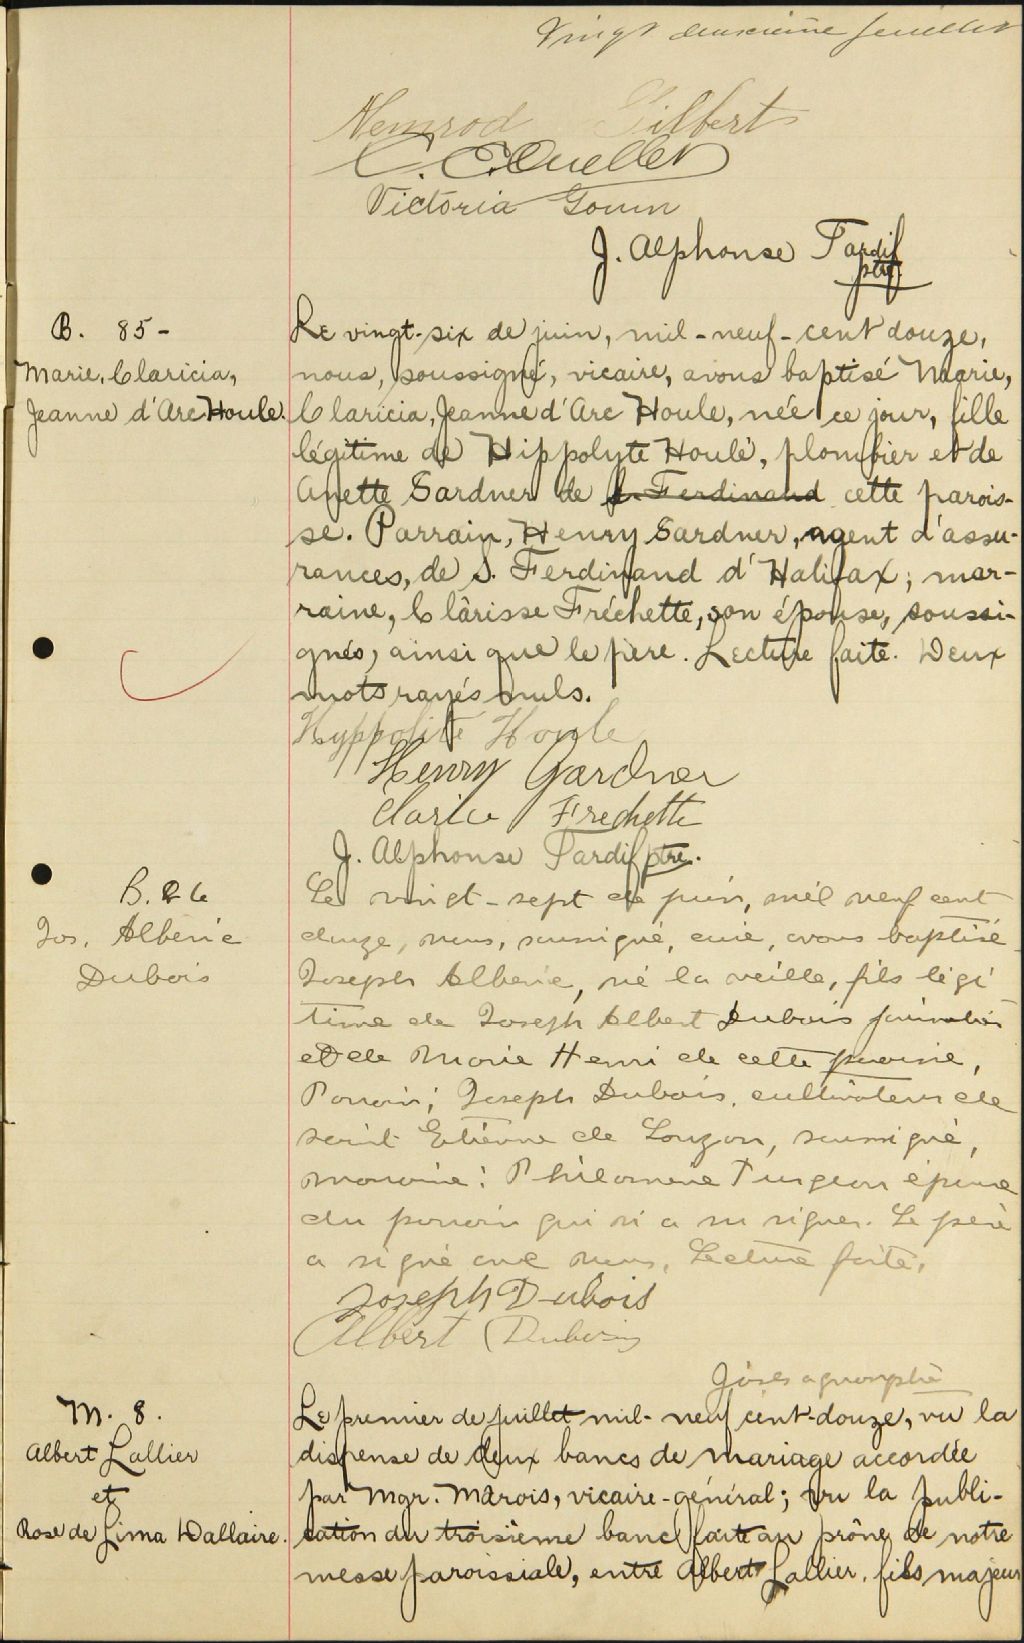 Vingt deuxième feuillet
Nemrod Gilbert
C. E. Ouellet
Victoria Gouin
J. Alphonse Tardif
ptre.
B. 85-
Marie, Claricia,
Jeanne d'Arc Houle.
Le vingt-six de juin, mil-neuf-cent douze,
nous, soussigné, vicaire, avons baptisé Marie,
Claricia, Jeanne d'Arc Houle, née ce jour, fille
légitime de Hippolyte Houle, plombier et de
Anette Gardner de S. Ferdinand cette parois-
se. Parrain, Henry Gardner, agent d'assu-
rances, de S. Ferdinand d'Halifax; mar-
raine, Clârisse Fréchette, son épouse, soussi-
gnés, ainsi que le père. Lecture faite. Deux
mots rayés nuls.
Hyppolite Houle
Henry Gardner
Clarice Frechette
J. Alphonse Tardif ptre.
B. 86
Jos. Albéric
Dubois
Le vingt-sept de juin, mil neuf cent
douze, nous, soussigné, curé, avons baptisé
Joseph Albéric, né la veille, fils légi
time de Joseph Albert Dubois journalier
et de Marie Henri de cette paroisse,
Parrain; Joseph Dubois, cultivateur de
saint Etienne de Lauzon, soussigné,
marraine: Philomène Turgeon épouse
du parrain qui n'a su signer. Le père
a signé avec nous, Lecture faite,
Joseph Dubois
Albert Dubois
M. 8.
Albert Lallier
et
Rose de Lima Dallaire.
Le premier de juillet mil-neuf cent-douze, vu la
dispense de deux bancs de mariage accordée
par Mgr. Marois, vicaire-général; vu la publi-
cation du troisième banc faite au prône de notre
messe paroissiale, entre Albert Lallier, fils majeur